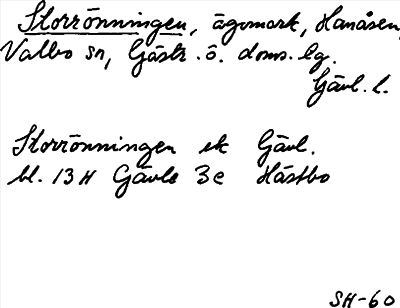 Storrönningen, ägomark, Hanåsen,
Valbo sn, Gästr. ö. doms. lg.
Gävl. l.
Storrönningen ek Gävl.
bl. 13H Gävle 3c Hästbo
SH-60